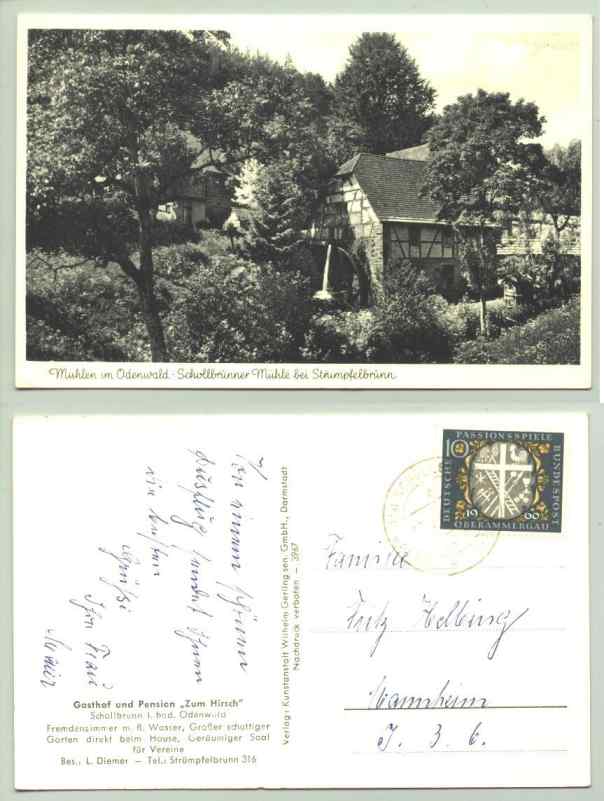 Mühlen im Odenwald - Schollbrunner Mühle bei Strümpfelbrunn
Von einem schönen
Ausflug sendet Ihnen
die besten
Grüße
Ihre Frau
Maier
Gasthof und Pension „Zum Hirsch"
Schollbrunn i. bad. Odenwald
Fremdenzimmer m. fl. Wasser, Großer schattiger
Garten direkt beim Hause, Geräumiger Saal
für Vereine
Bes.: L. Diemer — Tel.: Strümpfelbrunn 316
Verlag: Kunstanstalt Wilhelm Gerling sen. GmbH., Darmstadt
Nachdruck verboten — 3967
10
PASSIONSSPIELE
DEUTSCHE
BUNDESPOST
1960
OBERAMMERGAU
Familie
Fritz Helbing
Mannheim
J. 3. 6.